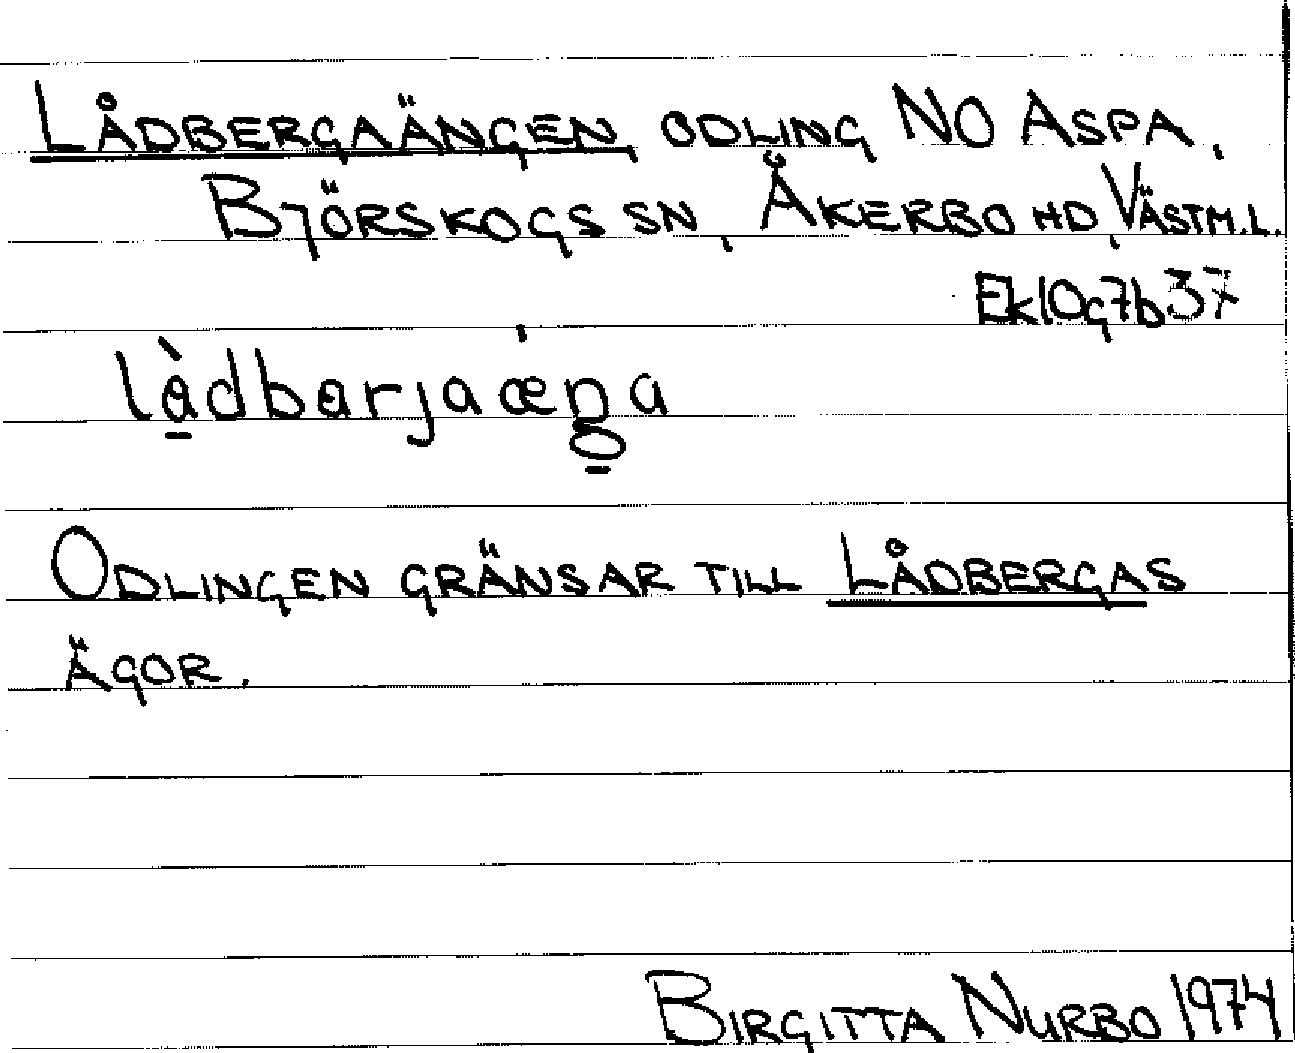 LÅDBERGAÄNGEN, ODLING NO ASPA,
BJÖRSKOGS SN, ÅKERBO HD, VÄSTM.L.
Ek10g7b37
làdbarjaæŋa
ODLINGEN GRÄNSAR TILL LÅDBERGAS
ÄGOR.
BIRGITTA NURBO 1974